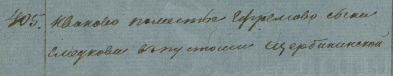 405. Иваново поместье Ефремова сына
Сладкова в пустоши Щербининской